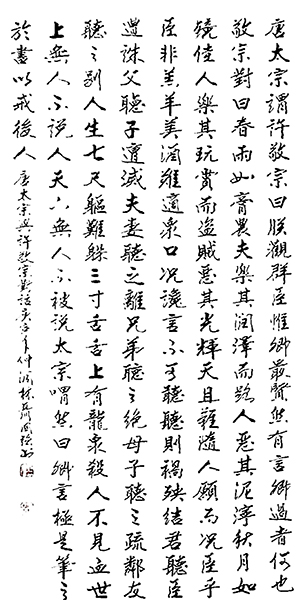 唐太宗謂許敬宗曰朕觀群臣惟卿最賢然有言卿過者何也
敬宗對曰春雨如膏農夫樂其潤澤而路人惡其泥濘秋月如
鏡佳人樂其玩賞而盜賊惡其光輝天且難隨人願而況臣乎
臣非羔羊美酒難適衆口況讒言不可聽聽則禍殃結君聽臣
遭誅父聽子遭滅夫妻聽之離兄弟聽之絕母子聽之疏鄰友
聽之別人生七尺軀難躲三寸舌舌上有龍泉殺人不見血世
上無人不說人天下無人不被說太宗喟然曰卿言極是筆之
於書以戒後人 唐太宗與許敬宗對話